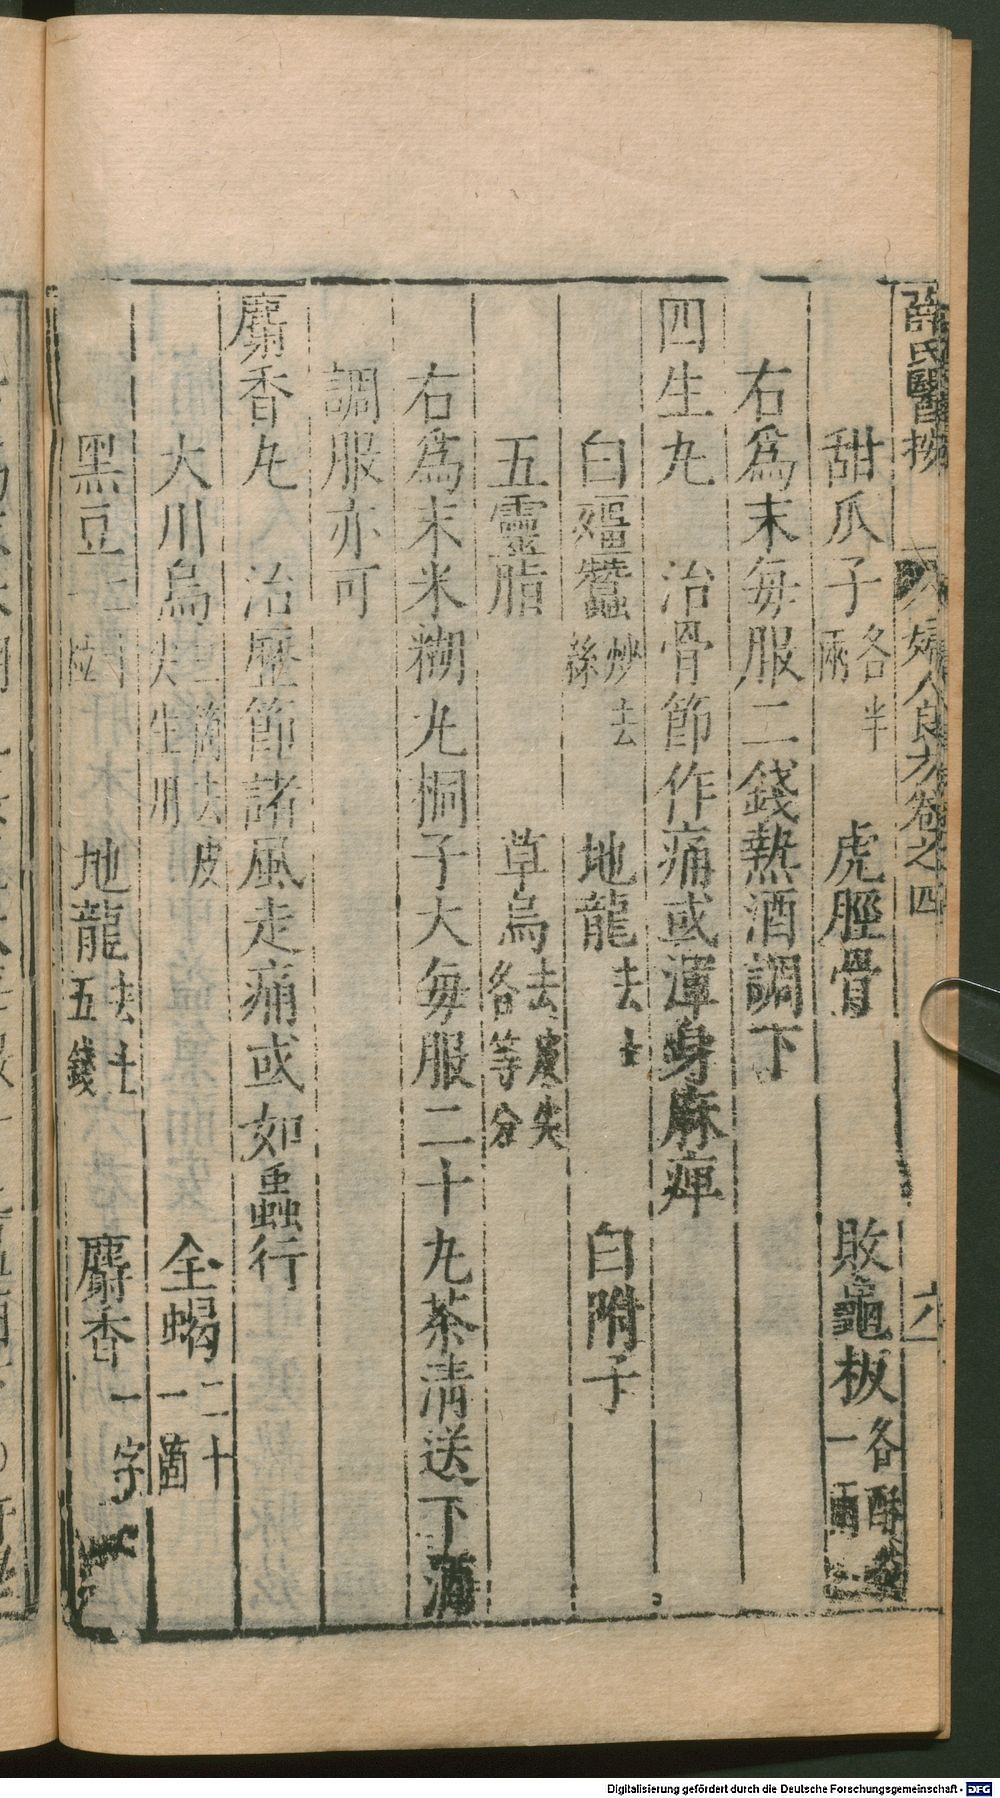 薛氏醫按 婦人良方卷之四 六
甜瓜子各半兩 虎脛骨 敗龜板各酥炙一兩
右爲末每服二錢熱酒調下
四生丸 治骨節作痛或渾身麻痺
白殭蠶炒去絲 地龍去土 白附子
五靈脂 草烏去皮尖各等分
右爲末米糊丸桐子大每服二十丸茶清送下酒
調服亦可
麝香丸 治歷節諸風走痛或如蟲行
大川烏三箇去皮尖生用 全蝎二十一箇
黑豆 粒 地龍去土五錢 麝香一字
Digitalisierung gefördert durch die Deutsche Forschungsgemeinschaft - DFG